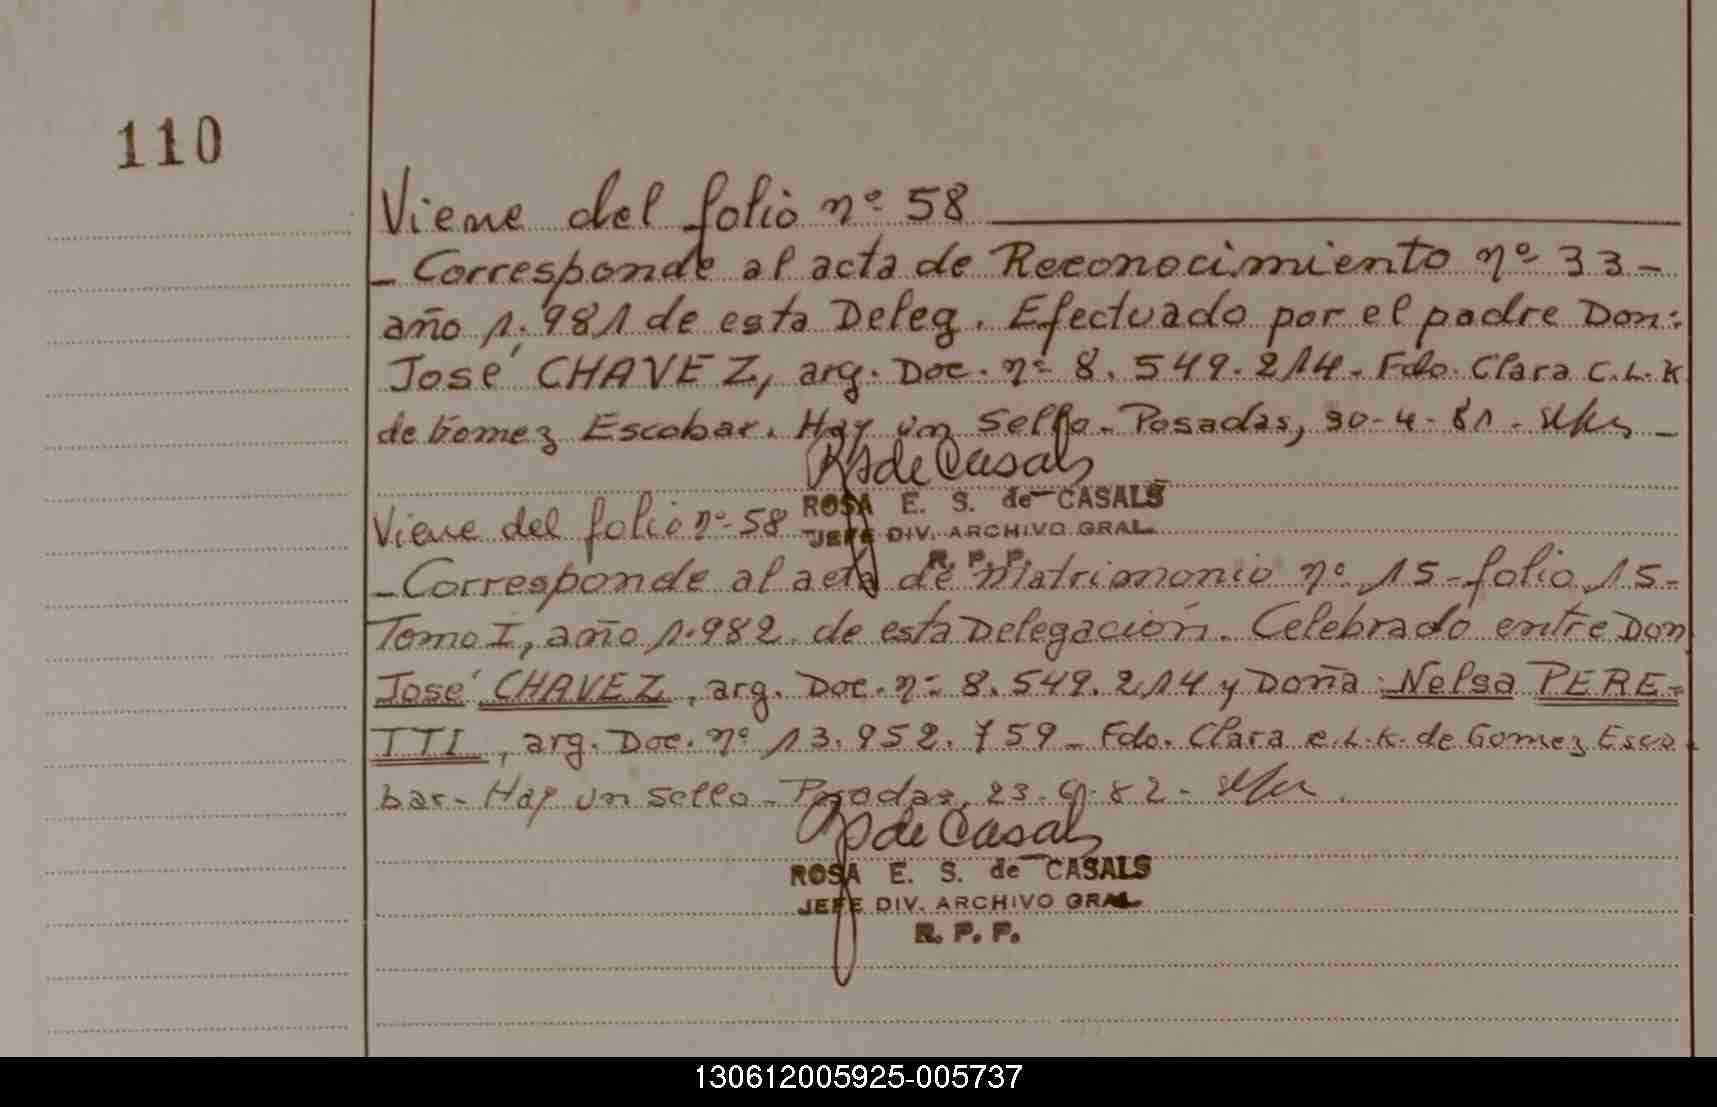 110
Viene del folio nº 58
- Corresponde al acta de Reconocimiento nº 33 -
año 1.981 de esta Deleg. Efectuado por el padre Don:
José CHAVEZ, arg. Doc. nº 8.549.214. Fdo. Clara C.L.K
de Gomez Escobar. Hay un sello. Posadas, 30-4-81.
R S de Casals
ROSA E. S. de CASALS
Viene del folio nº 58
JEFE DIV. ARCHIVO GRAL.
R. P. P.
- Corresponde al acta de Matrimonio nº 15 - folio 15 -
Tomo I, año 1.982 de esta Delegación. Celebrado entre Don
José CHAVEZ, arg. Doc. nº 8.549.214 y Doña Nelsa PERE-
TTI, arg. Doc. nº 13.952.759 - Fdo. Clara C.L.K. de Gomez Esco
bar - Hay un sello - Posadas, 23- -82 -
de Casals
ROSA E. S. de CASALS
JEFE DIV. ARCHIVO GRAL
R. P. P.
130612005925-005737